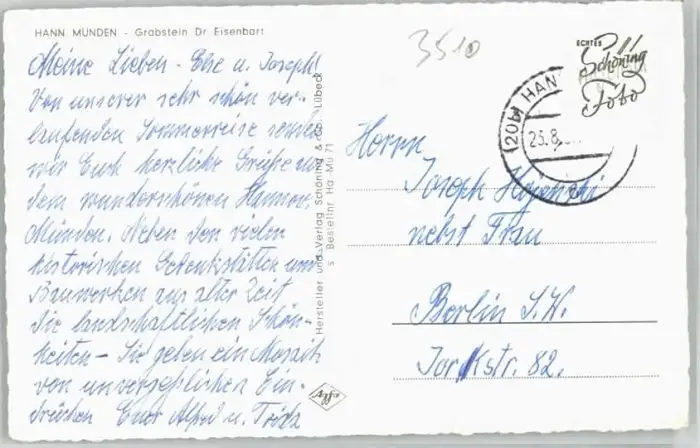 HANN. MÜNDEN - Grabstein Dr Eisenbart
Meine Lieben - Else u. Joseph!
Von unserer sehr schön ver-
laufenden Sommerreise senden
wir Euch herzliche Grüße aus
dem wunderschönen Hannov.
Münden. Neben den vielen
historischen Gedenkstätten und
Bauwerken aus alter Zeit
die landschaftlichen Schön-
heiten - Sie geben ein Mosaik
von unvergeßlichen Ein-
drücken Euer Alfred u. Trids
Hersteller und Verlag Schöning & Co., Lübeck
Bestellnr Ha Mü 71
3510
ECHTES
Schöning
Foto
(20b) HANN
25.8.
Herrn
Joseph
nebst Frau
Berlin S.W.
Yorkstr. 82.